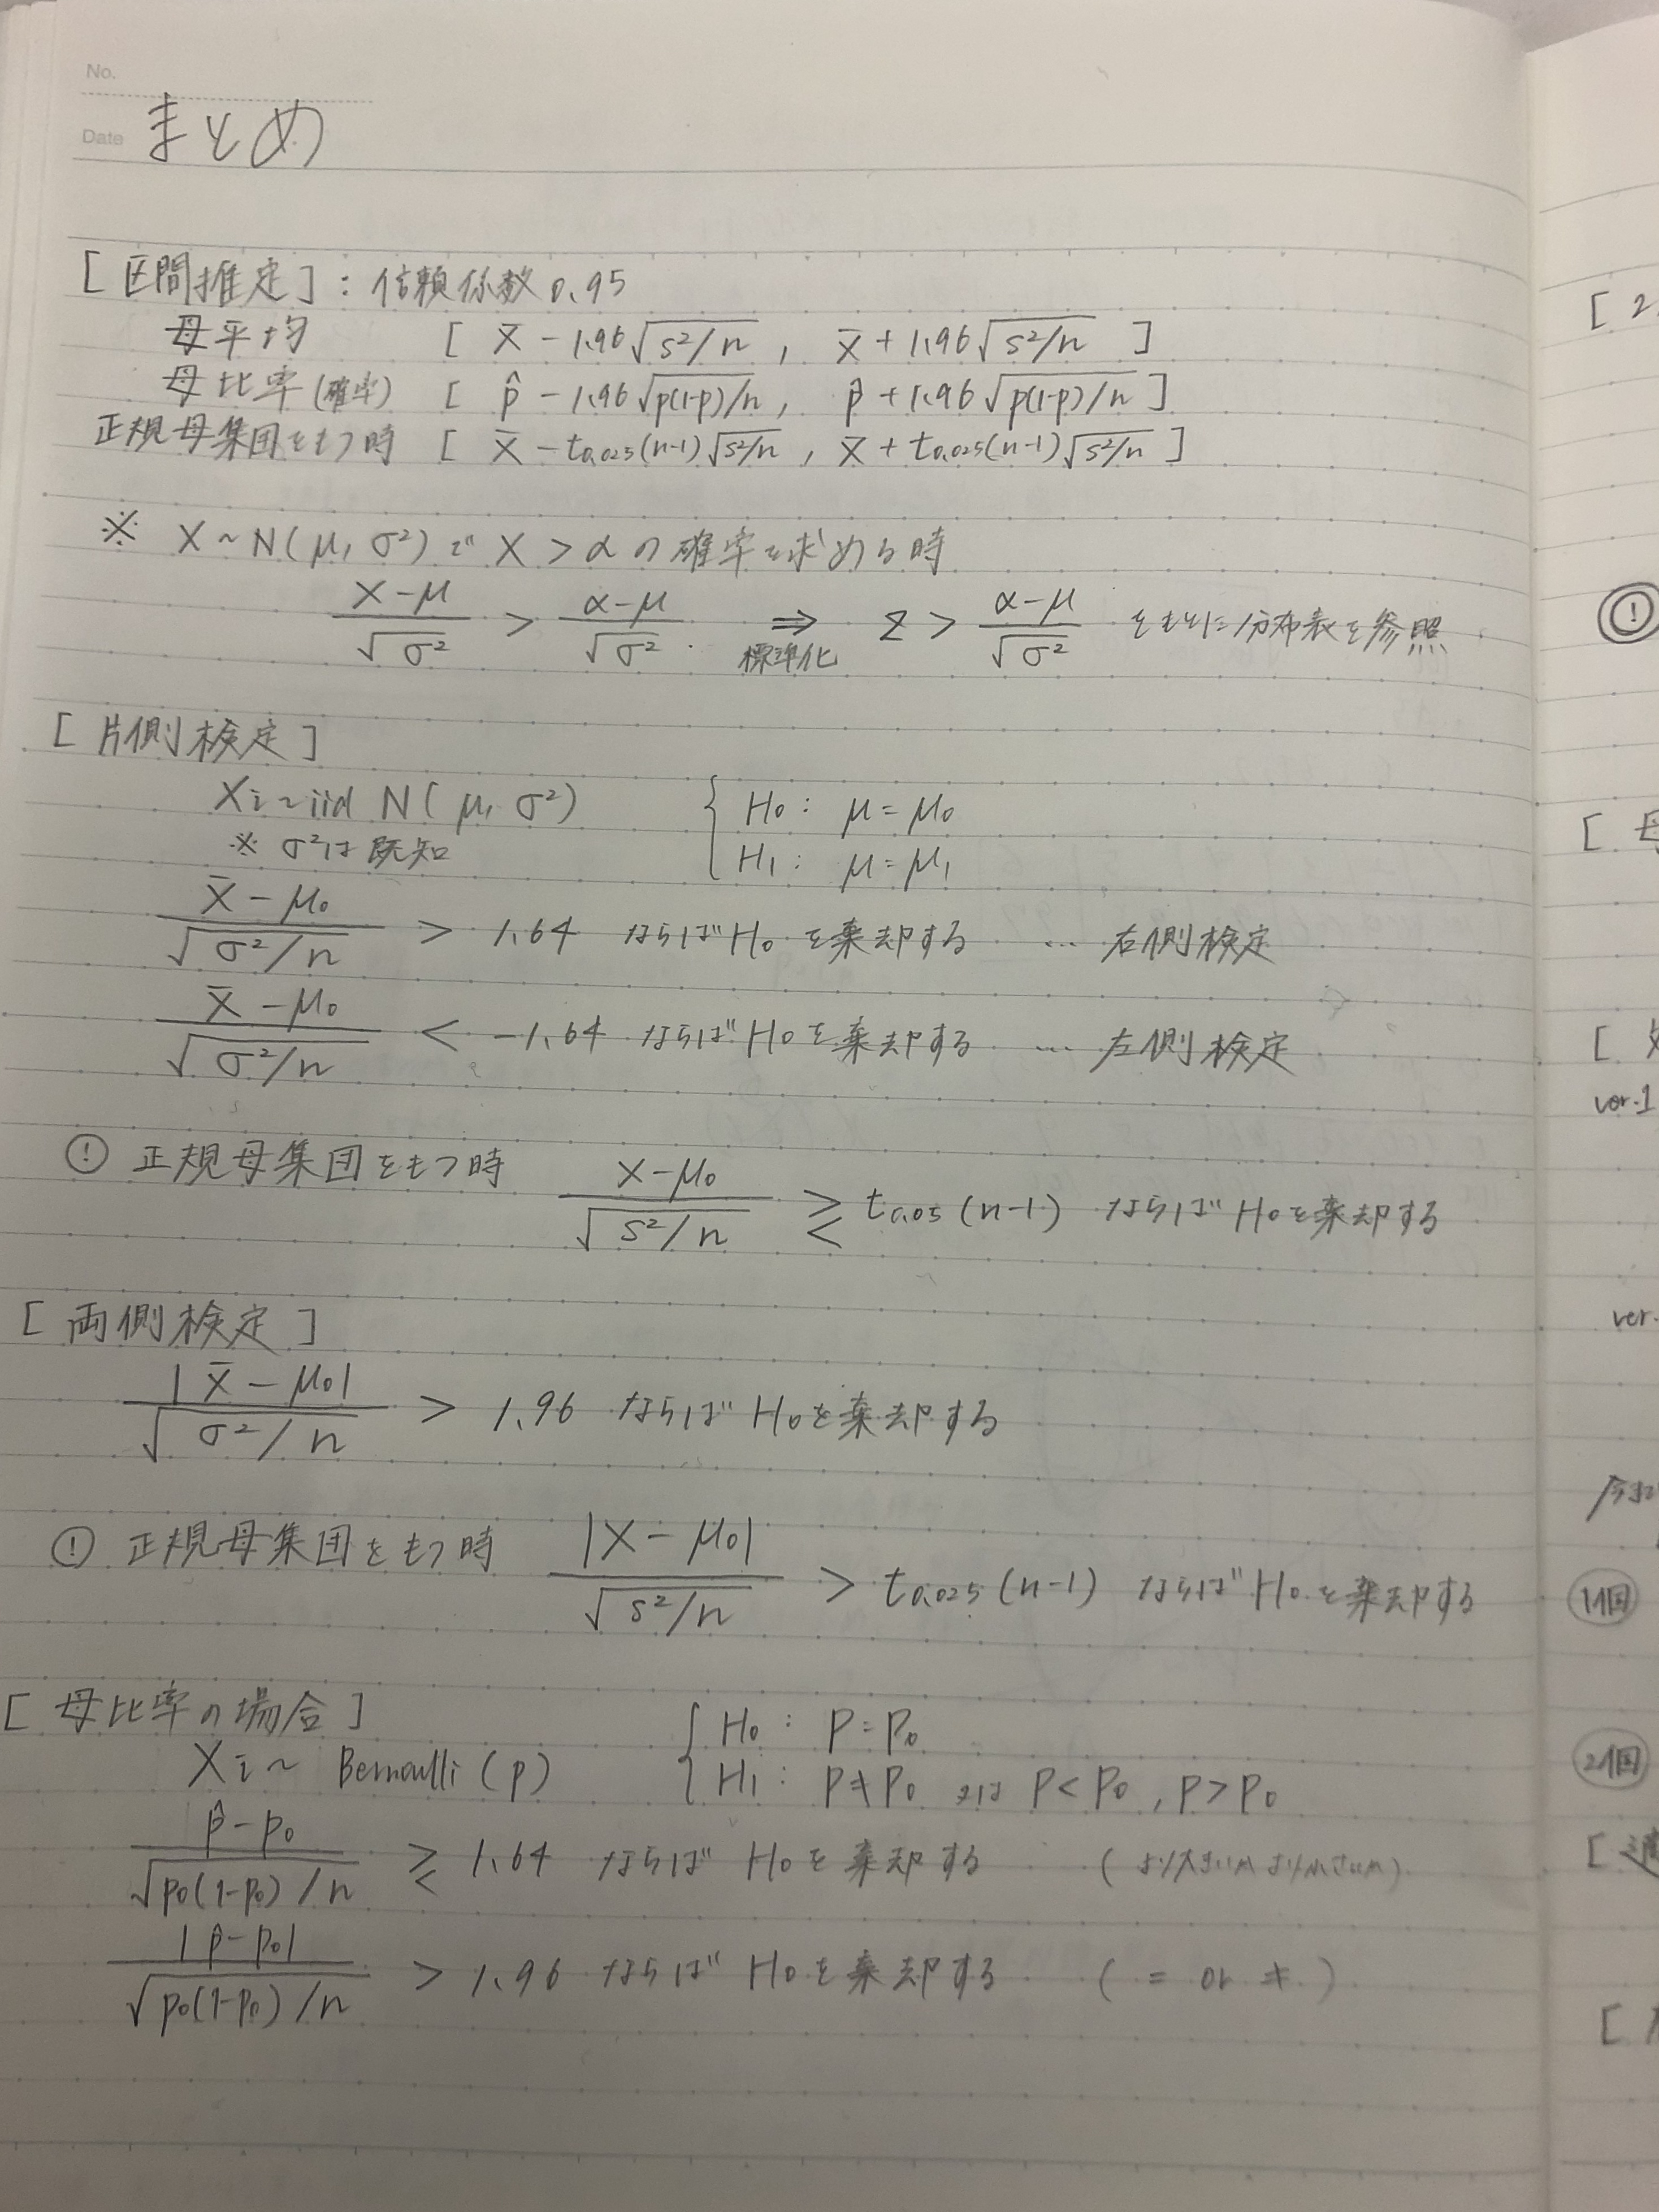 No.
Date まとめ
[区間推定]: 信頼係数0.95
母平均 [ X̄ - 1.96√(s²/n) , X̄ + 1.96√(s²/n) ]
母比率(確率) [ p̂ - 1.96√(p(1-p)/n) , p̂ + 1.96√(p(1-p)/n) ]
正規母集団をもつ時 [ X̄ - t0.025(n-1)√(s²/n) , X̄ + t0.025(n-1)√(s²/n) ]
※ X ~ N(μ, σ²) で X > α の確率を求める時
(X-μ)/√σ² > (α-μ)/√σ² ⇒ 標準化 Z > (α-μ)/√σ² をもとに分布表を参照
[片側検定]
Xi ~ iid N(μ, σ²) { H0: μ = μ0
※ σ²は既知 H1: μ = μ1
(X̄-μ0)/√(σ²/n) > 1.64 ならば H0 を棄却する … 右側検定
(X̄-μ0)/√(σ²/n) < -1.64 ならば H0 を棄却する … 左側検定
! 正規母集団をもつ時 (X-μ0)/√(s²/n) ≷ t0.05(n-1) ならば H0 を棄却する
[両側検定]
|X̄-μ0|/√(σ²/n) > 1.96 ならば H0 を棄却する
! 正規母集団をもつ時 |X-μ0|/√(s²/n) > t0.025(n-1) ならば H0 を棄却する
[母比率の場合] { H0: P = P0
Xi ~ Bernoulli(p) H1: P ≠ P0 又は P < P0, P > P0
(p̂-p0)/√(p0(1-p0)/n) ≷ 1.64 ならば H0 を棄却する
|p̂-p0|/√(p0(1-p0)/n) > 1.96 ならば H0 を棄却する ( = or ≠ )
[ 2
!
[ 母
[
ver.1
ver.
1個
2個
[
[